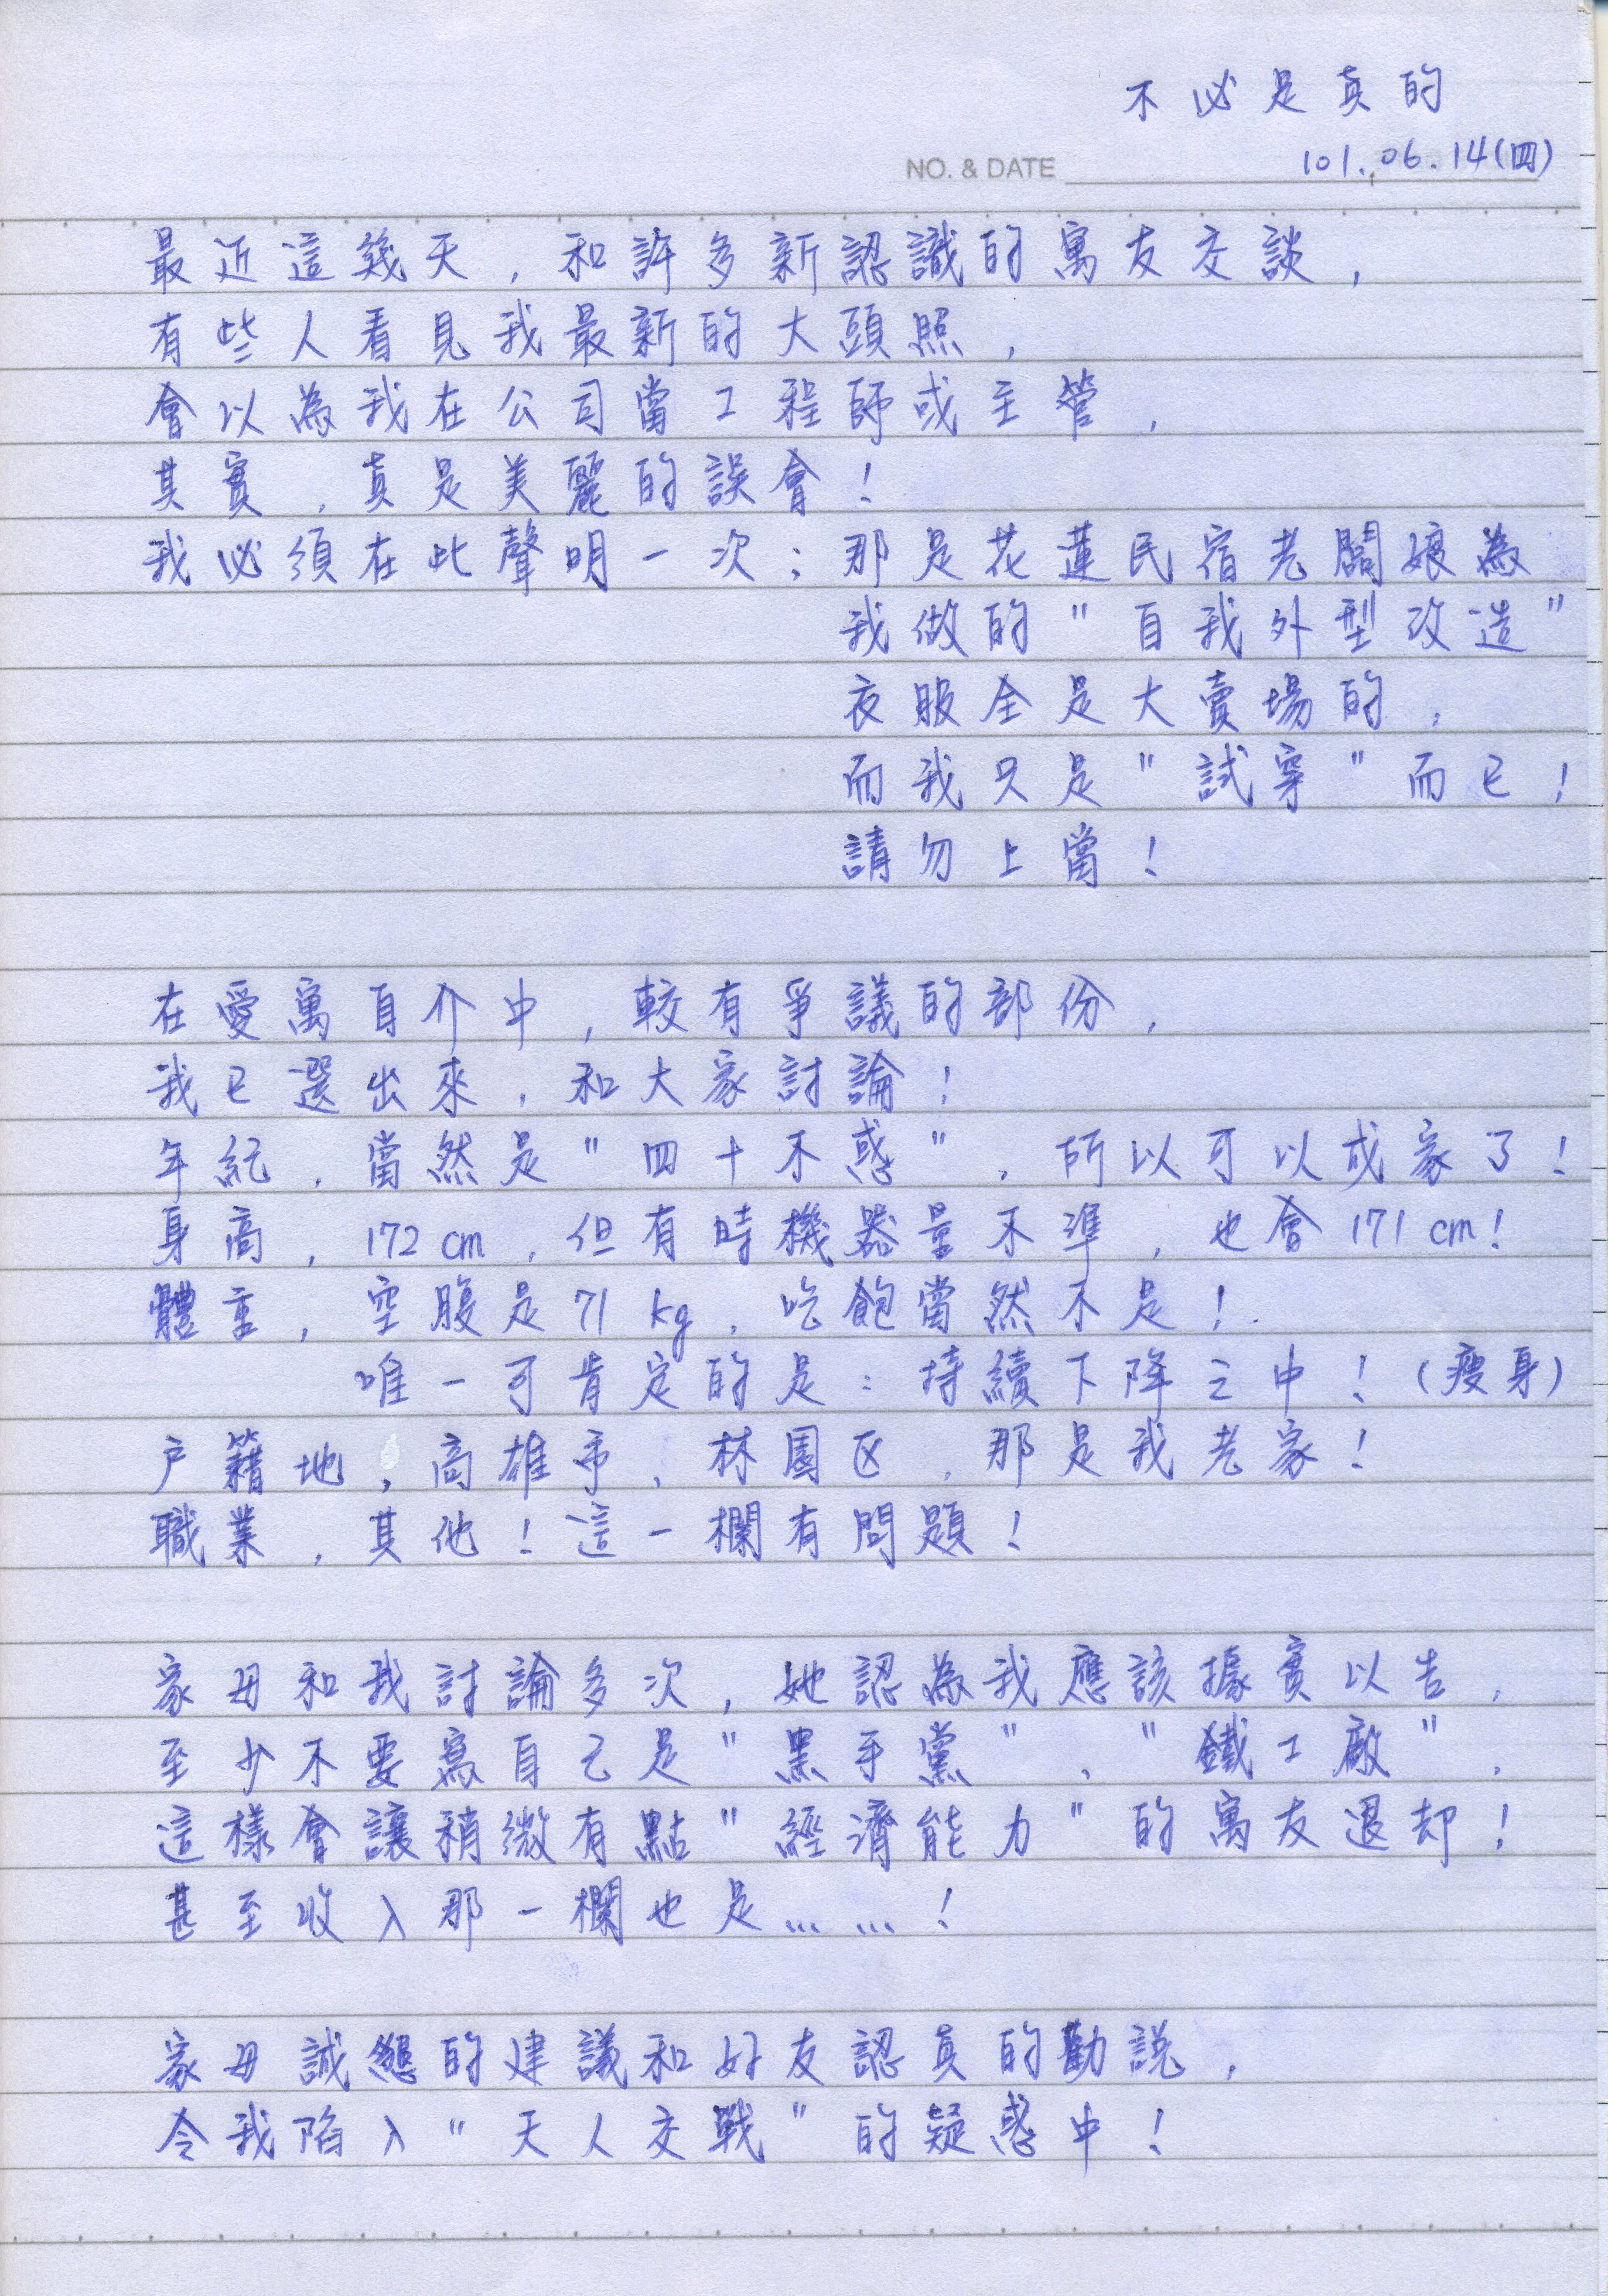 不必是真的
NO. & DATE 101.06.14(四)
最近這幾天，和許多新認識的寓友交談，
有些人看見我最新的大頭照，
會以為我在公司當工程師或主管，
其實，真是美麗的誤會！
我必須在此聲明一次：那是花蓮民宿老闆娘為
我做的"自我外型改造"
衣服全是大賣場的，
而我只是"試穿"而已！
請勿上當！
在愛寓自介中，較有爭議的部份，
我已選出來，和大家討論！
年紀，當然是"四十不惑"，所以可以成家了！
身高，172cm，但有時機器量不準，也會171cm！
體重，空腹是71kg，吃飽當然不是！
唯一可肯定的是：持續下降之中！(瘦身)
戶籍地，高雄市，林園区，那是我老家！
職業，其他！這一欄有問題！
家母和我討論多次，她認為我應該據實以告，
至少不要寫自己是"黑手黨"、"鐵工廠"，
這樣會讓稍微有點"經濟能力"的寓友退却！
甚至收入那一欄也是……！
家母誠懇的建議和好友認真的勸說，
令我陷入"天人交戰"的疑惑中！